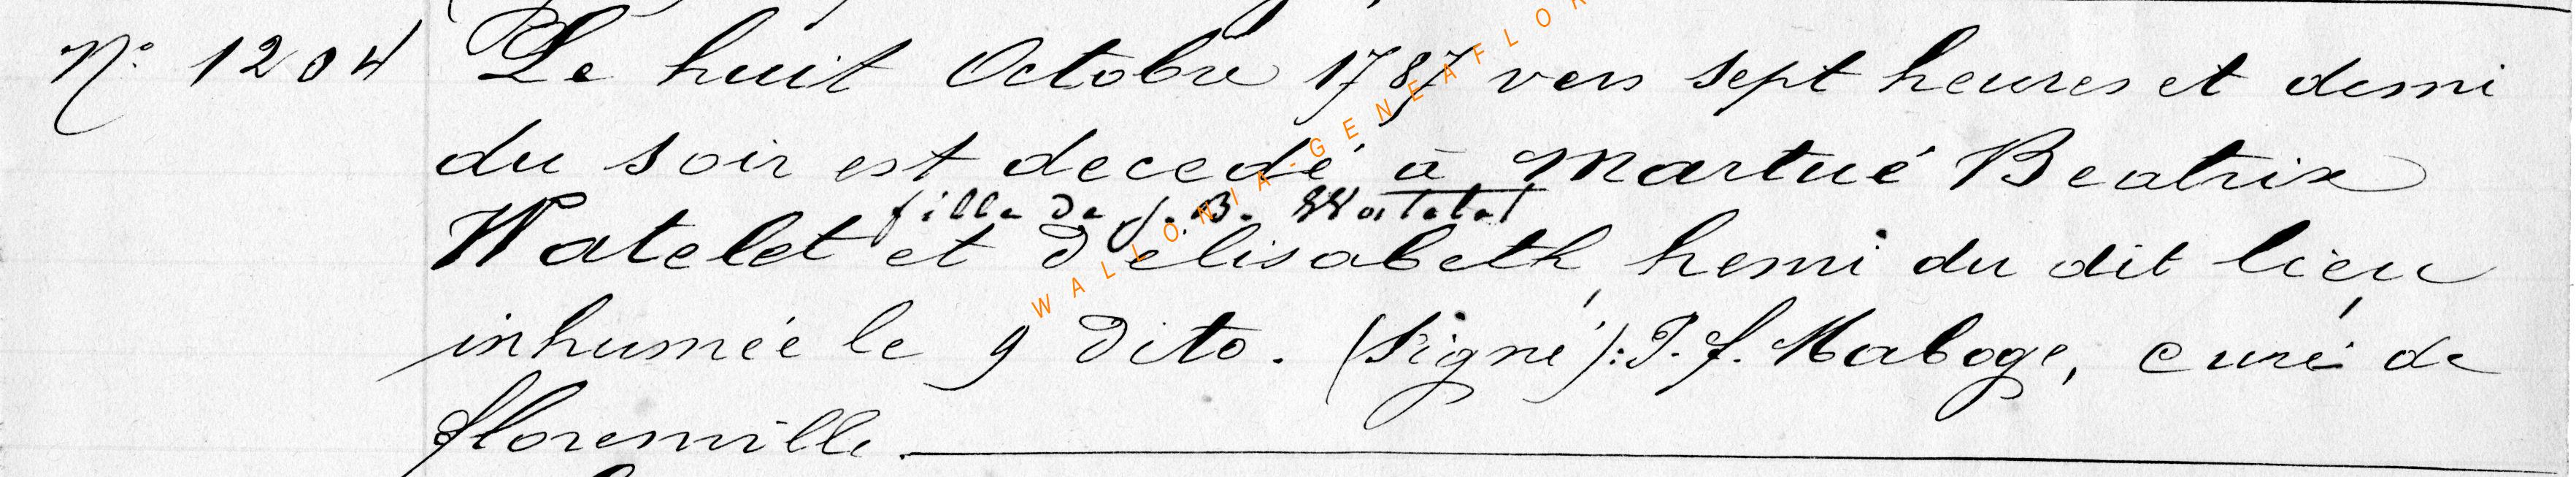 N° 1204 Le huit Octobre 1787 vers sept heures et demi
du soir est decedé à Martué Beatrix
fille de J. B. Watelet
Watelet et d'élisabeth henri du dit lieu,
inhumée le 9 dito. (Signé): P. f. Maboge, curé de
florenville.
WALLONIA-GENEAFLOR